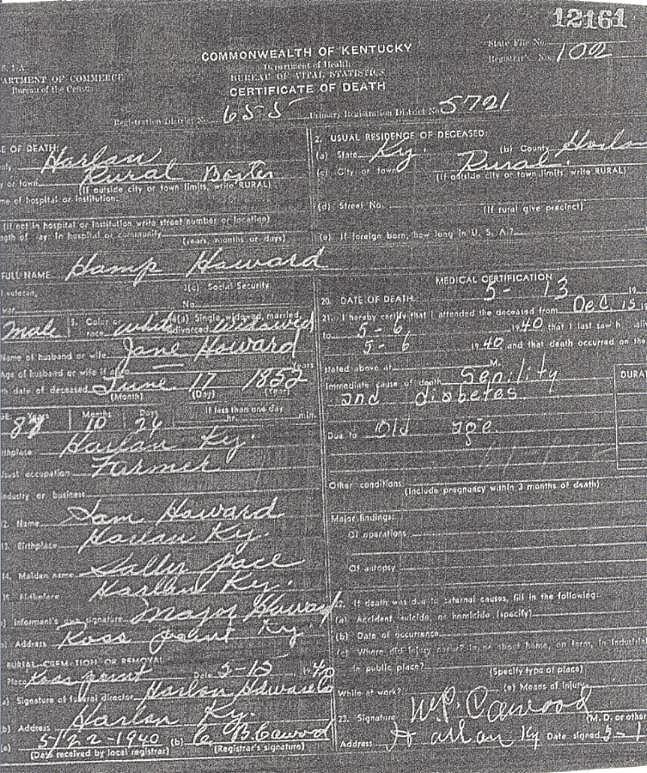 12161
COMMONWEALTH OF KENTUCKY
Department of Health
BUREAU OF VITAL STATISTICS
CERTIFICATE OF DEATH
State File No.
Registrar's No. 102
ARTMENT OF COMMERCE
Bureau of the Census
Registration District No. 655 Primary Registration District No. 5721
E OF DEATH:
Harlan
or town Rural Baxter
(If outside city or town limits, write RURAL)
me of hospital or institution:
(If not in hospital or institution write street number or location)
In hospital or community
(years, months or days)
2. USUAL RESIDENCE OF DECEASED:
(a) State Ky. (b) County Harlan
(c) City or town Rural.
(If outside city or town limits, write RURAL)
(d) Street No. (If rural give precinct)
(e) If foreign born, how long in U. S. A.?
FULL NAME Hamp Howard
veteran, 3(c) Social Security
war No.
Male 5. Color or race white 6(a) Single, widowed, married, divorced widowed
Name of husband or wife Jane Howard
Age of husband or wife if years
date of deceased June 17 1852
(Month) (Day) (Year)
Years Months Days If less than one day
10 26 hr. min.
thplace Harlan Ky.
occupation Farmer
Industry or business
12. Name Sam Howard
13. Birthplace Harlan Ky.
14. Maiden name Sally Pace
15. Birthplace Harlan Ky.
Informant's own signature Major Howard
Address Ross Point Ky
BURIAL, CREMATION OR REMOVAL
Place Ross point Date 5-15 1940
Signature of funeral director Harlan Hdware Co
(b) Address Harlan Ky.
(a) 5/22-1940 (b) C B. Cawood
(Date received by local registrar) (Registrar's signature)
MEDICAL CERTIFICATION
20. DATE OF DEATH 5 - 13 19
21. I hereby certify that I attended the deceased from Dec 15 19
to 5-6, 1940 that I last saw h alive
5-6 1940 and that death occurred on the
stated above at M.
Immediate cause of death Senility
and diabetes
DURAT
Due to Old age
Other conditions
(Include pregnancy within 3 months of death)
Major findings:
Of operations
Of autopsy
22. If death was due to external causes, fill in the following:
(a) Accident, suicide, or homicide (specify)
(b) Date of occurrence
(c) Where did injury occur? In or about home, on farm, in industrial
in public place?
(Specify type of place)
While at work? (e) Means of injury
23. Signature W.P. Cawood
(M. D. or other
Address Harlan Ky Date signed 5-1